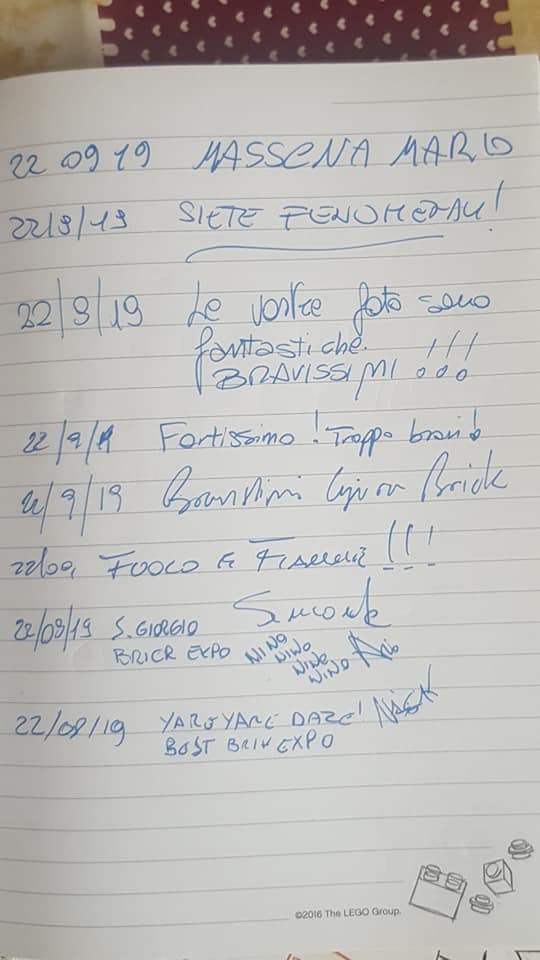 22 09 19 MASSENA MARIO
22/9/19 SIETE FENOMENALI!
22/9/19 Le vostre foto sono
fantastiche.
BRAVISSIMI !!!
22/9/19 Fortissimo! Troppo bravi!
22/9/19 Bravissimi Brick
22/09 FUOCO E FIAMME!!!
22/09/19 S. GIORGIO
BRICK EXPO NINO
NINO
NINO
NINO
22/09/19 YARE YARE DAZE!
BEST BRIK EXPO
©2016 The LEGO Group.